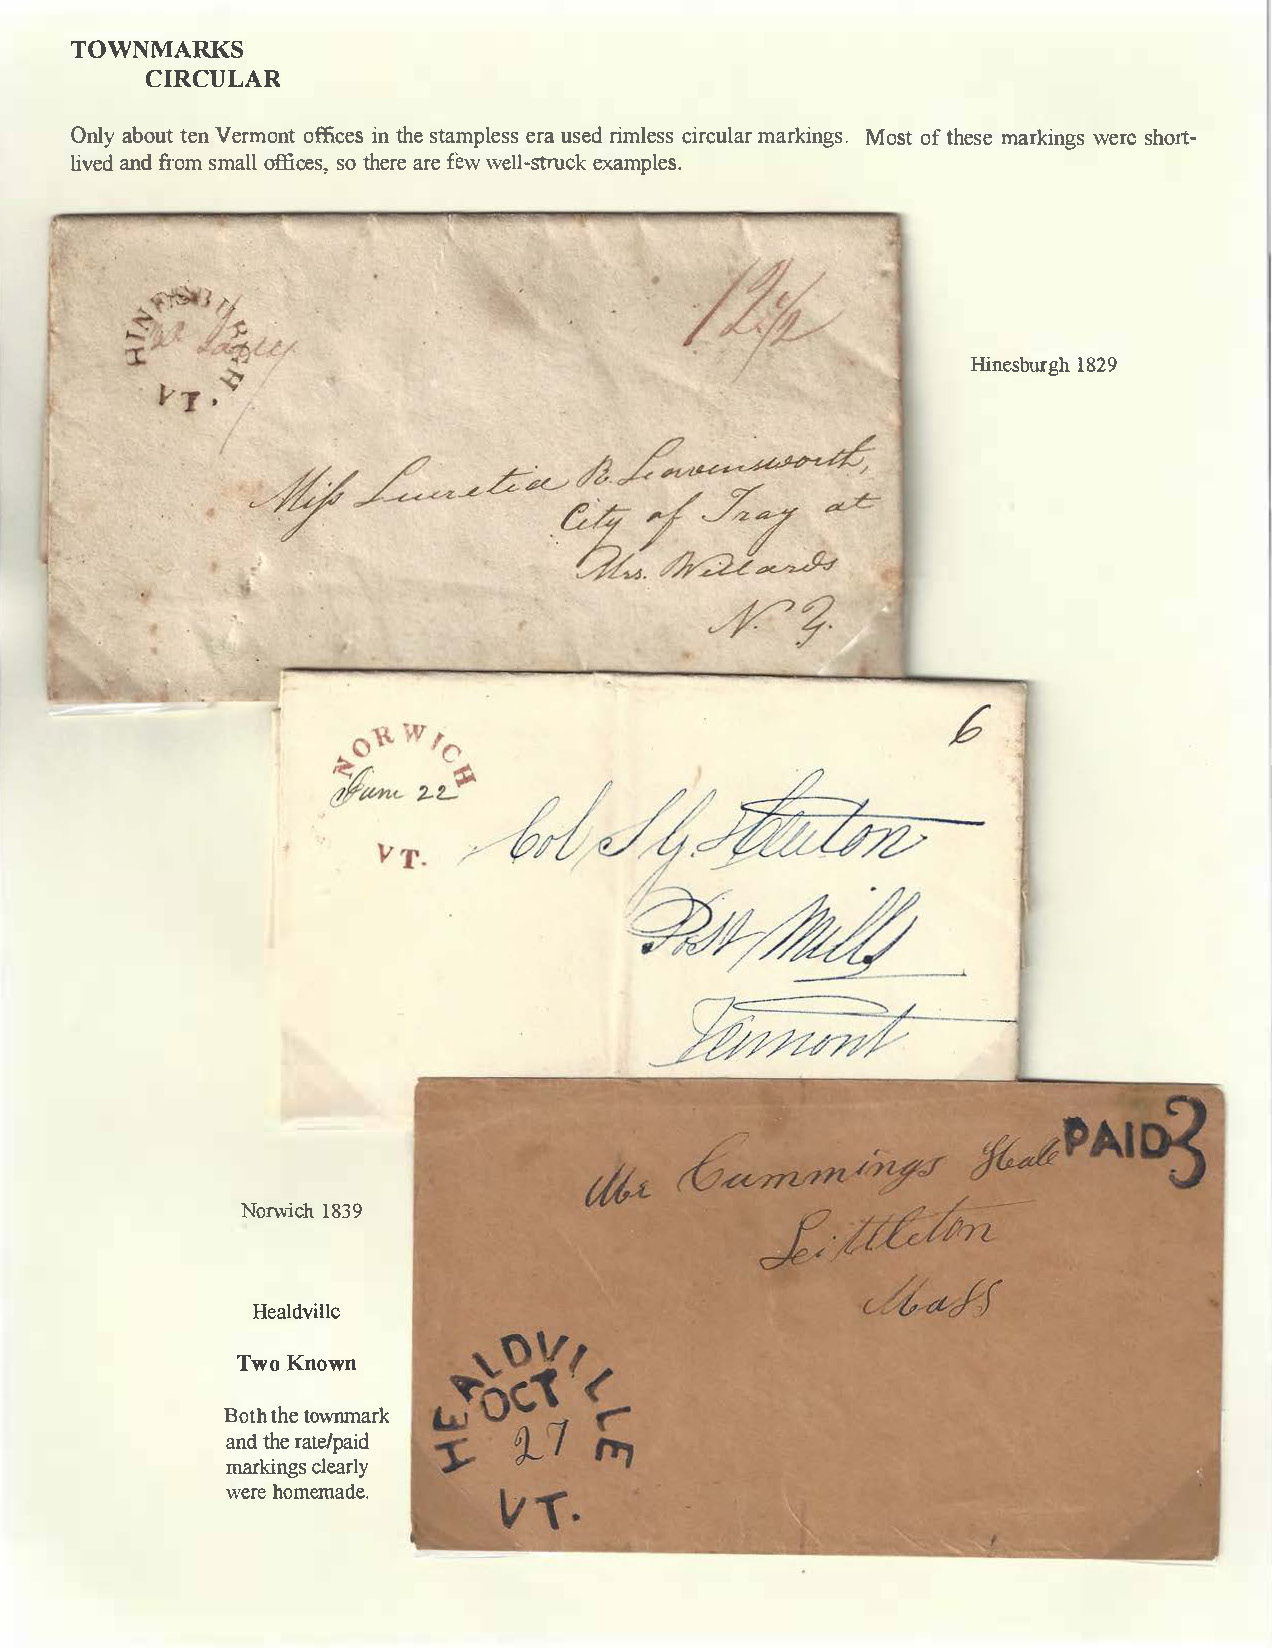 TOWNMARKS
CIRCULAR
Only about ten Vermont offices in the stampless era used rimless circular markings. Most of these markings were short-
lived and from small offices, so there are few well-struck examples.
HINESBURGH
VT.
12 1/2
Hinesburgh 1829
Miss Lucretia B. Leavensworth,
City of Troy at
Mrs. Willards
N. Y.
NORWICH
June 22
VT.
6
Col
Post Mills
Vermont
PAID 3
Mr Cummings Hale
Littleton
Mass
Norwich 1839
Healdville
Two Known
Both the townmark
and the rate/paid
markings clearly
were homemade.
HEALDVILLE
OCT
27
VT.